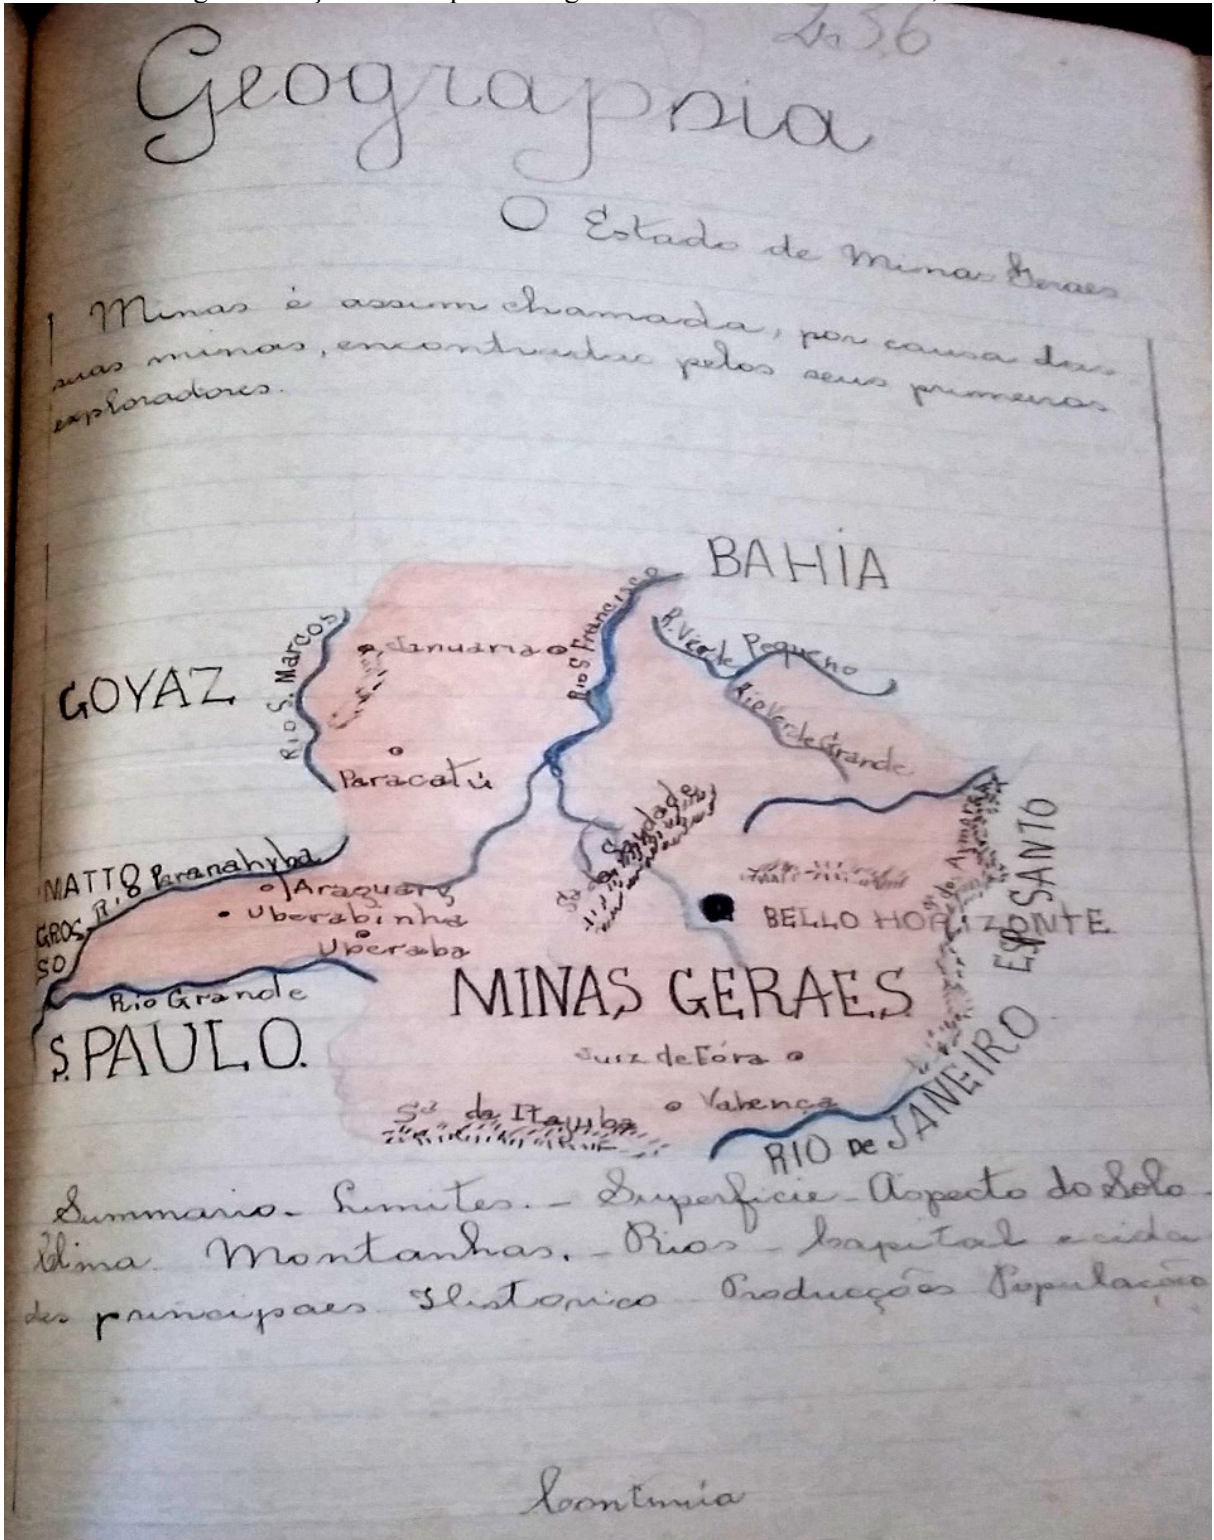 Geographia
O Estado de Minas Geraes
Minas é assim chamada, por causa das
suas minas, encontradas pelos seus primeiros
exploradores.
BAHIA
GOYAZ
Rio S. Marcos
Januaria
Rio S. Francisco
R. Verde Pequeno
Rio Verde Grande
Paracatú
Saudade
MATTO
GROS-
SO
Rio Paranahyba
Araguary
Uberabinha
Uberaba
BELLO HORIZONTE
ESP SANTO
Rio Grande
MINAS GERAES
S. PAULO.
Juiz de Fóra
Valença
Sa da Itajuba
RIO DE JANEIRO
Summario - Limites. - Superficie - Aspecto do Solo -
Clima. Montanhas. - Rios - Capital e cida
des principaes Historico Producções População
Continúa